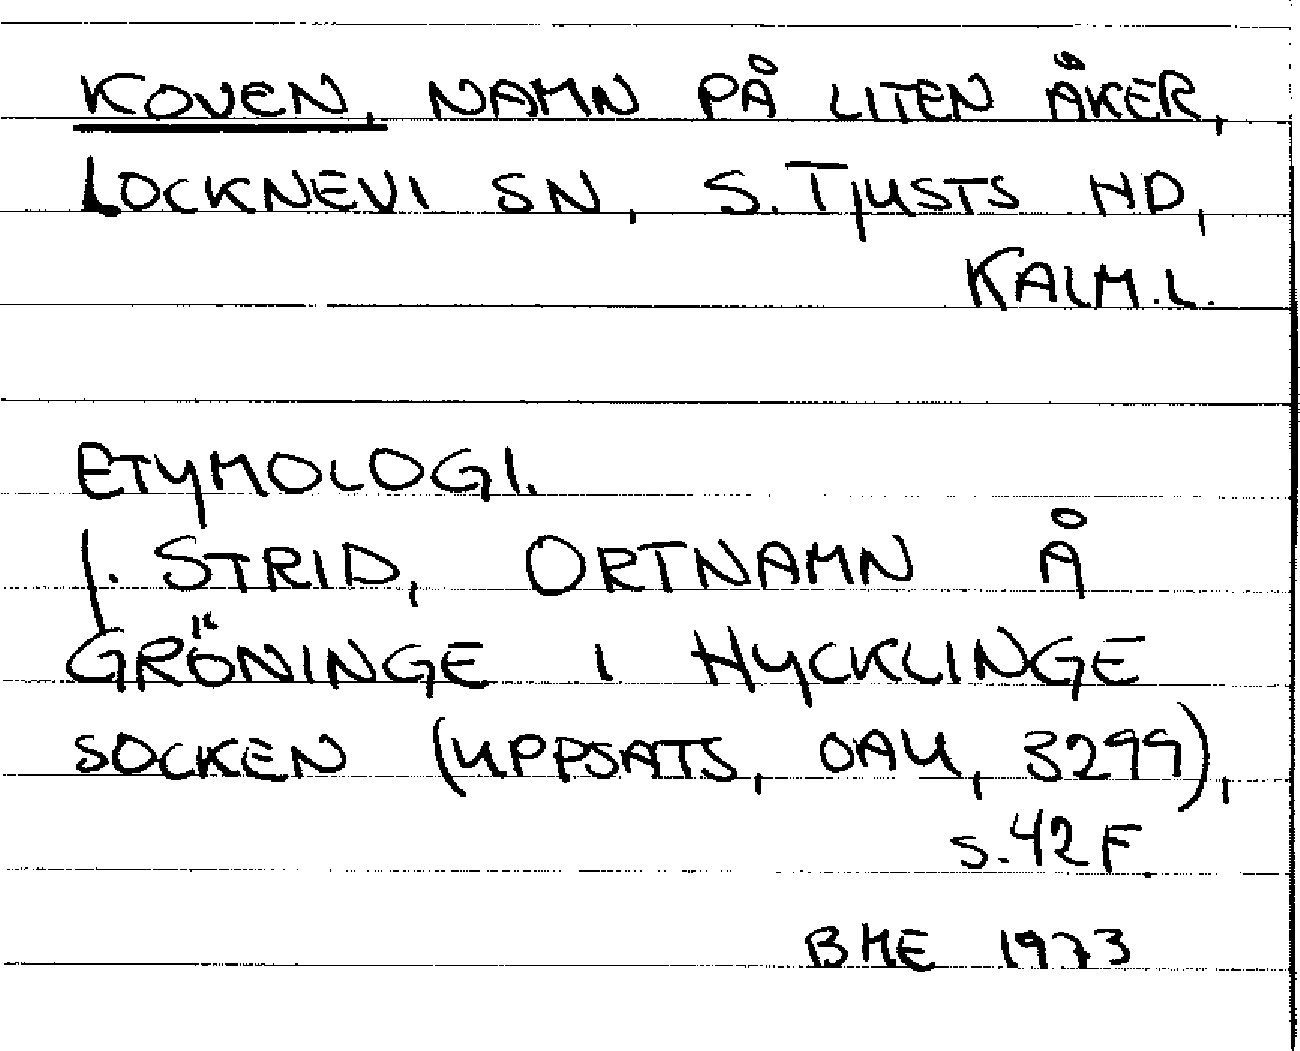 KOVEN, NAMN PÅ LITEN ÅKER,
LOCKNEVI SN, S. TJUSTS HD,
KALM.L.
ETYMOLOGI.
J. STRID, ORTNAMN Å
GRÖNINGE I HYCKLINGE
SOCKEN (UPPSATS, OAU, 3299),
S. 42 F.
BME 1973